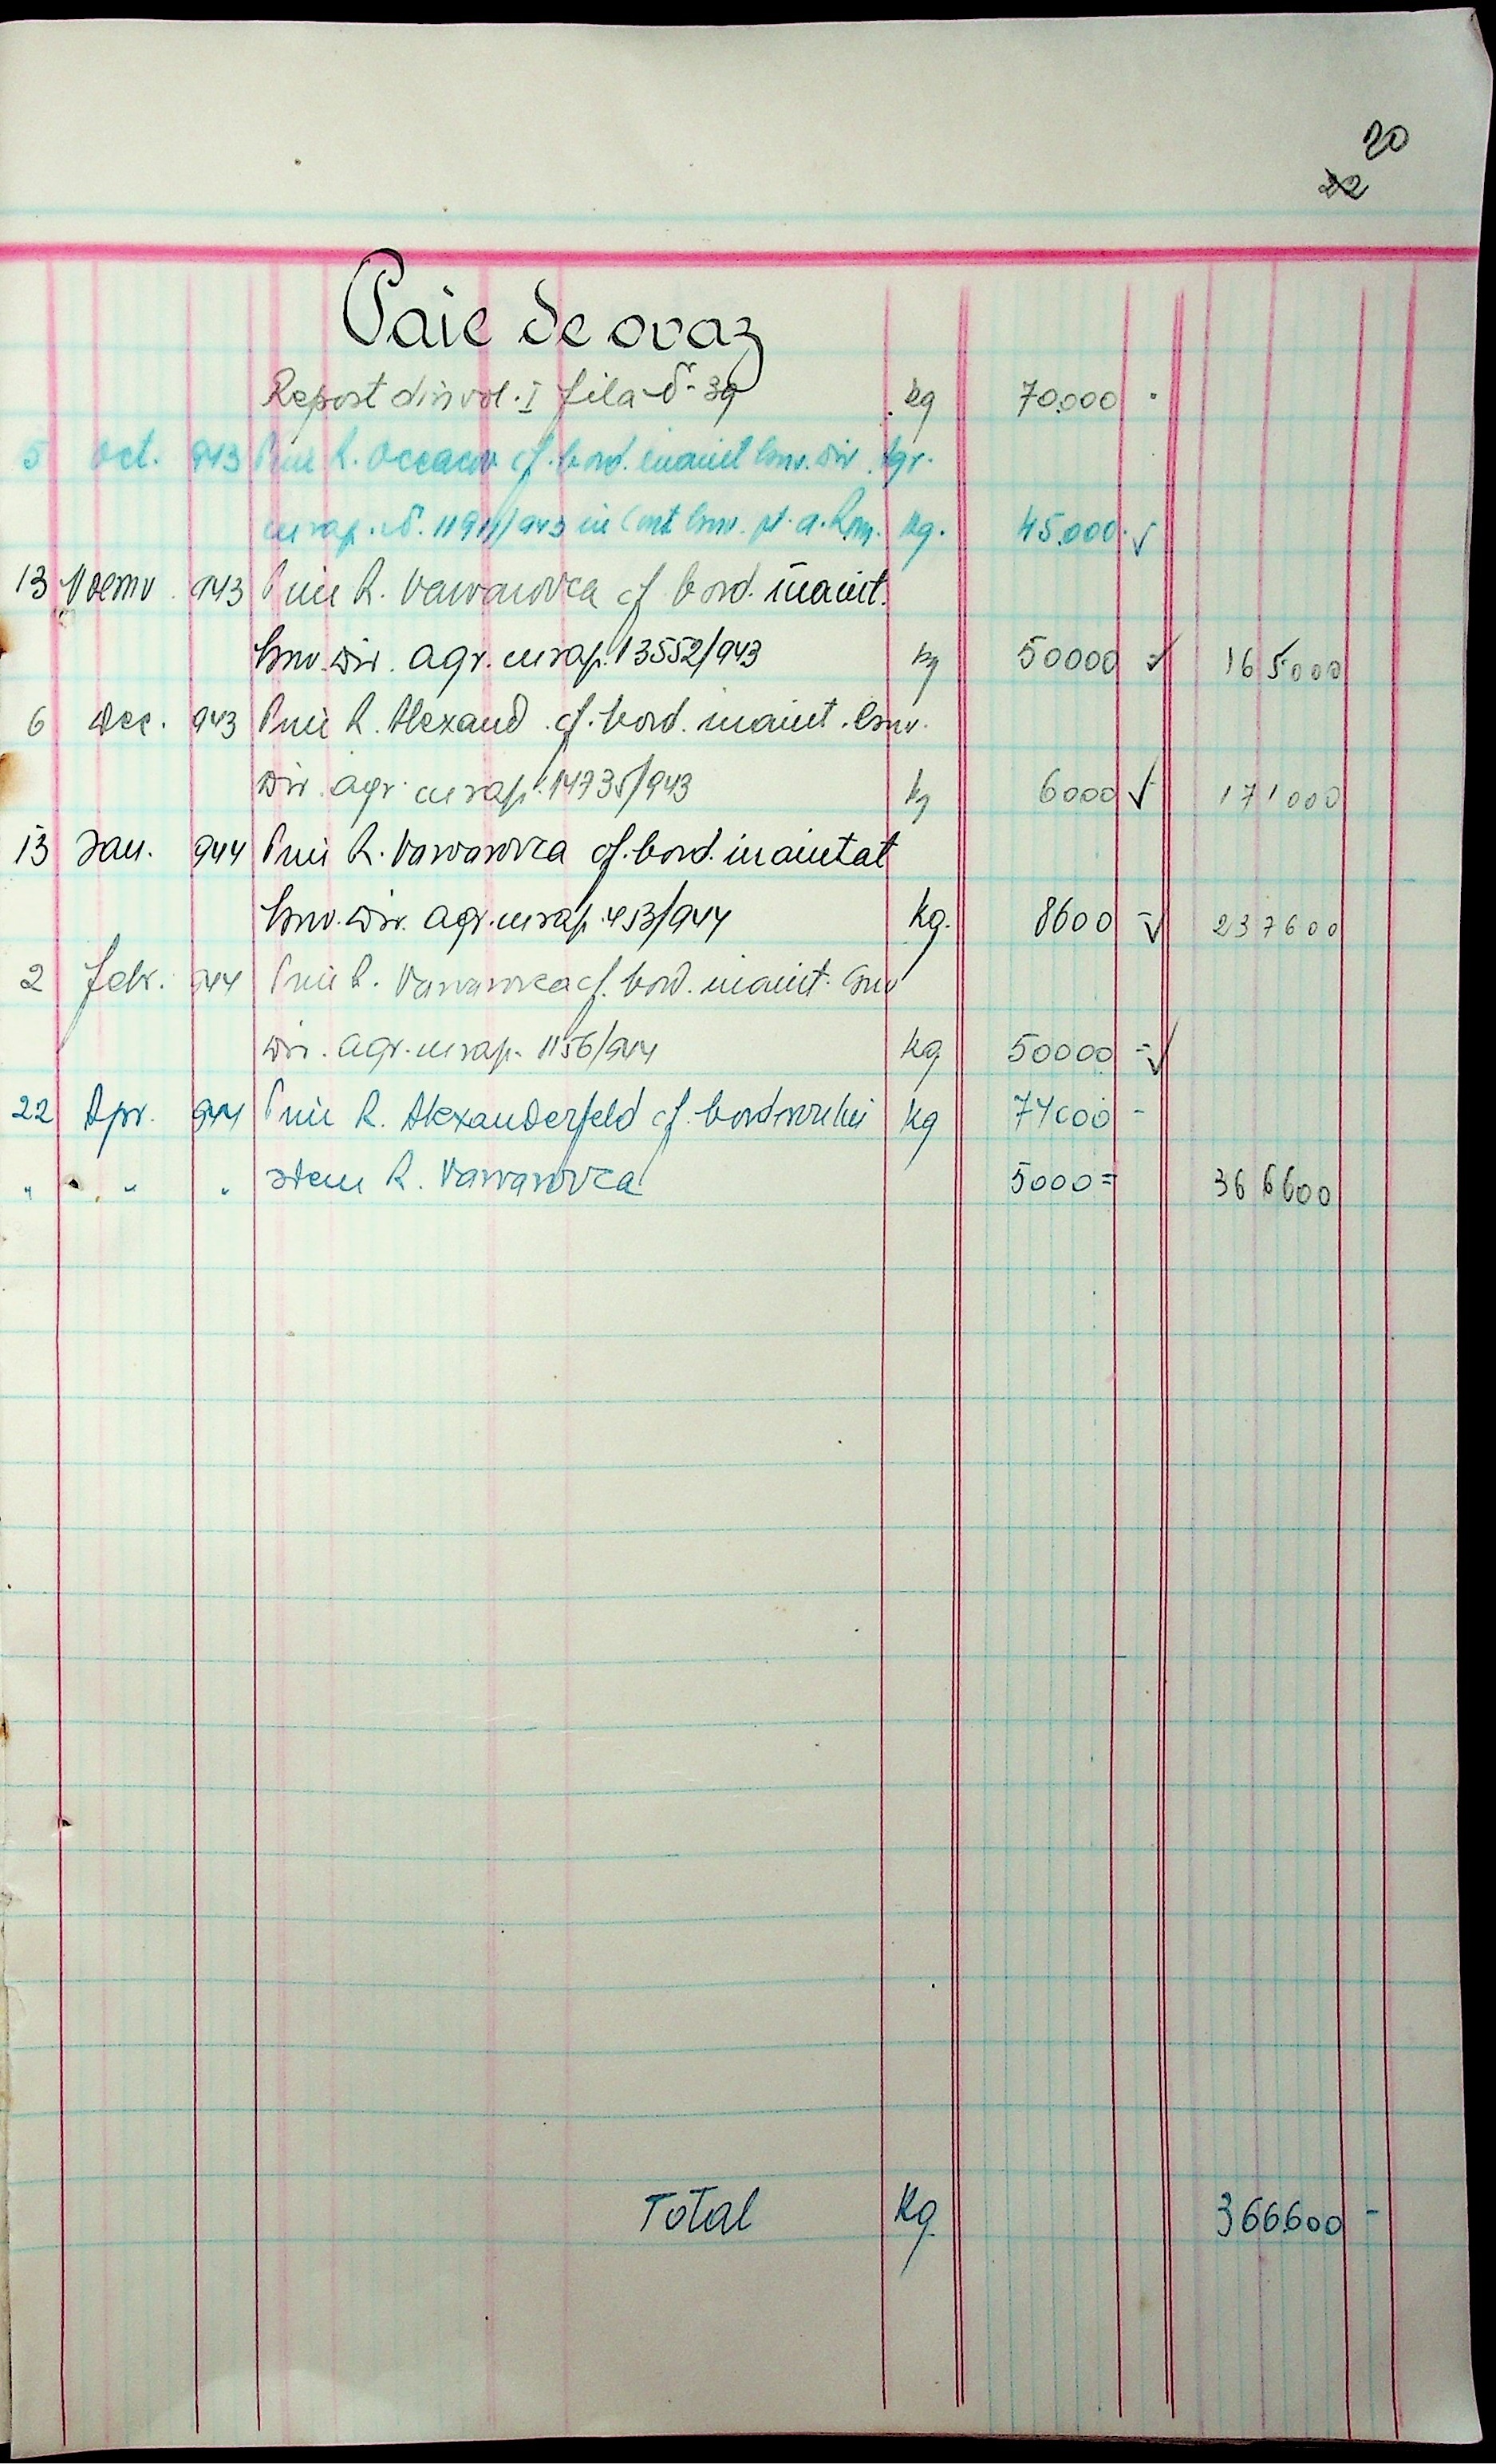 20
22
Paie de oraz
Report din vol. I fila No 39 kg 70.000
5 Oct. 943 Prin R. Oceacov cf. bord. inaint Gruv. Dir. Agr.
cu rap. No. 11911/943 in Cont pt. a. Rom. kg. 45.000
13 Noemv. 943 Prin R. Varvarovca cf bord. inaint.
Dir. agr. cu rap. 13552/943 kg 50000 165000
6 Dec. 943 Prin R. Alexand. cf. bord. inaint.
Dir. agr. cu rap. 14735/943 kg 6000 171000
13 Ian. 944 Prin R. Varvarovca cf. bord. inaintat
Dir. agr. cu rap. 453/944 kg. 8600 237600
2 febr. 944 Prin R. Varvarovca cf. bord. inaint.
Dir. agr. cu rap. 1156/944 kg 50000
22 Apr. 944 Prin R. Alexanderfeld cf. borderoului kg 74000 -
" " " Idem R. Varvarovca 5000 = 366600
Total Kg 366.600 -